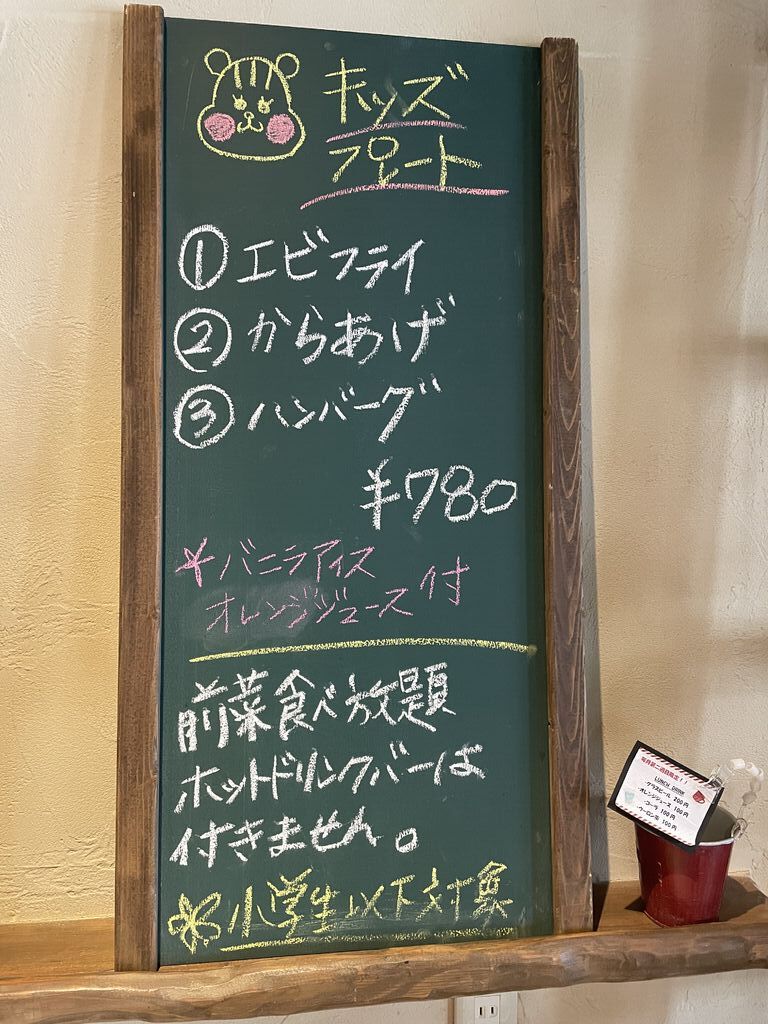 キッズ
プレート
① エビフライ
② からあげ
③ ハンバーグ
¥780
*バニラアイス
オレンジジュース付
前菜食べ放題
ホットドリンクバーは
付きません。
*小学生以下対象
LUNCH DRINK
グラスビール 200円
オレンジジュース 100円
コーラ 100円
ウーロン茶 100円